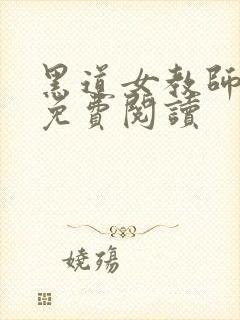 黑道女教師
免費閱讀
嬈殤